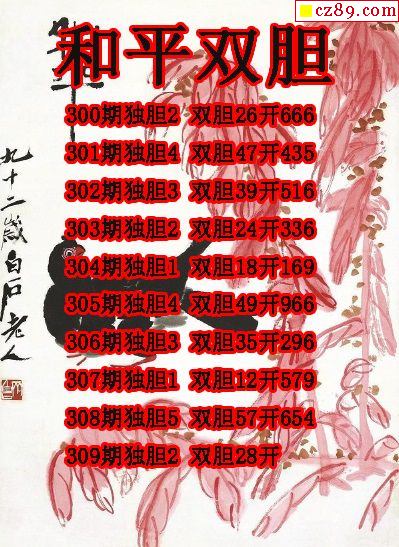 cz89.com
和平双胆
300期独胆2 双胆26开666
301期独胆4 双胆47开435
302期独胆3 双胆39开516
303期独胆2 双胆24开336
304期独胆1 双胆18开169
305期独胆4 双胆49开966
306期独胆3 双胆35开296
307期独胆1 双胆12开579
308期独胆5 双胆57开654
309期独胆2 双胆28开
九十二岁白石老人